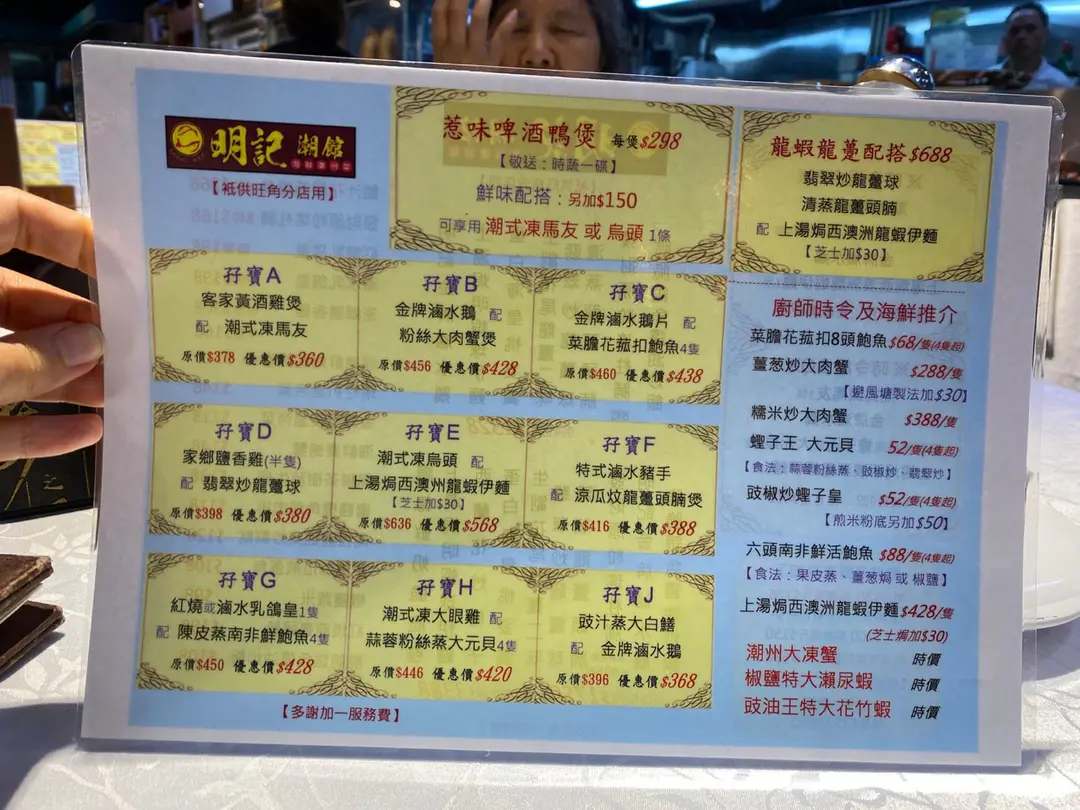 明記 潮館
【衹供旺角分店用】
惹味啤酒鴨煲 每煲$298
【敬送：時蔬一碟】
鮮味配搭：另加$150
可享用 潮式凍馬友 或 烏頭 1條
龍蝦龍躉配搭$688
翡翠炒龍躉球
清蒸龍躉頭腩
配 上湯焗西澳洲龍蝦伊麵
【芝士加$30】
孖寶A
客家黃酒雞煲
配 潮式凍馬友
原價$378 優惠價$360
孖寶B
金牌滷水鵝 配
粉絲大肉蟹煲
原價$456 優惠價$428
孖寶C
金牌滷水鵝片 配
菜膽花菰扣鮑魚4隻
原價$460 優惠價$438
孖寶D
家鄉鹽香雞(半隻)
配 翡翠炒龍躉球
原價$398 優惠價$380
孖寶E
潮式凍烏頭 配
上湯焗西澳州龍蝦伊麵
【芝士加$30】
原價$636 優惠價$568
孖寶F
特式滷水豬手
配 涼瓜炆龍躉頭腩煲
原價$416 優惠價$388
孖寶G
紅燒或滷水乳鴿皇1隻
配 陳皮蒸南非鮮鮑魚4隻
原價$450 優惠價$428
孖寶H
潮式凍大眼雞 配
蒜蓉粉絲蒸大元貝4隻
原價$446 優惠價$420
孖寶J
豉汁蒸大白鱔
配 金牌滷水鵝
原價$396 優惠價$368
【多謝加一服務費】
廚師時令及海鮮推介
菜膽花菰扣8頭鮑魚$68/隻(4隻起)
薑葱炒大肉蟹 $288/隻
【避風塘製法加$30】
糯米炒大肉蟹 $388/隻
蟶子王 大元貝 52/隻(4隻起)
【食法：蒜蓉粉絲蒸．豉椒炒．翡翠炒】
豉椒炒蟶子皇 $52/隻(4隻起)
【煎米粉底另加$50】
六頭南非鮮活鮑魚 $88/隻(4隻起)
【食法：果皮蒸、薑葱焗 或 椒鹽】
上湯焗西澳洲龍蝦伊麵$428/隻
(芝士焗加$30)
潮州大凍蟹 時價
椒鹽特大瀨尿蝦 時價
豉油王特大花竹蝦 時價